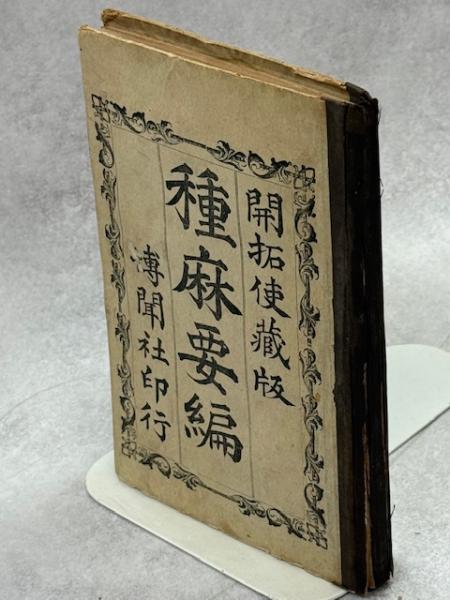 開拓使藏版
種麻要編
博聞社印行